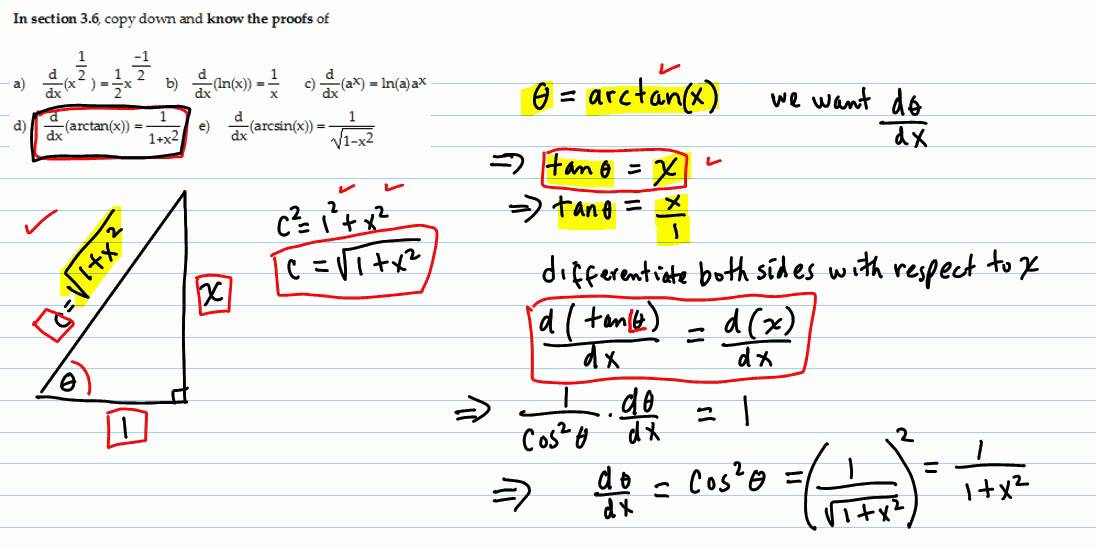 In section 3.6, copy down and know the proofs of
a) d/dx (x^{1/2}) = 1/2 x^{-1/2} b) d/dx (ln(x)) = 1/x c) d/dx (a^x) = ln(a) a^x
d) d/dx (arctan(x)) = 1/(1+x²) e) d/dx (arcsin(x)) = 1/√(1−x²)
θ = arctan(x) we want dθ/dx
⇒ tan θ = x
⇒ tan θ = x/1
c² = 1² + x²
c = √(1+x²)
c = √(1+x²)
x
θ
1
differentiate both sides with respect to x
d(tan(θ))/dx = d(x)/dx
⇒ 1/cos²θ · dθ/dx = 1
⇒ dθ/dx = cos²θ = (1/√(1+x²))² = 1/(1+x²)